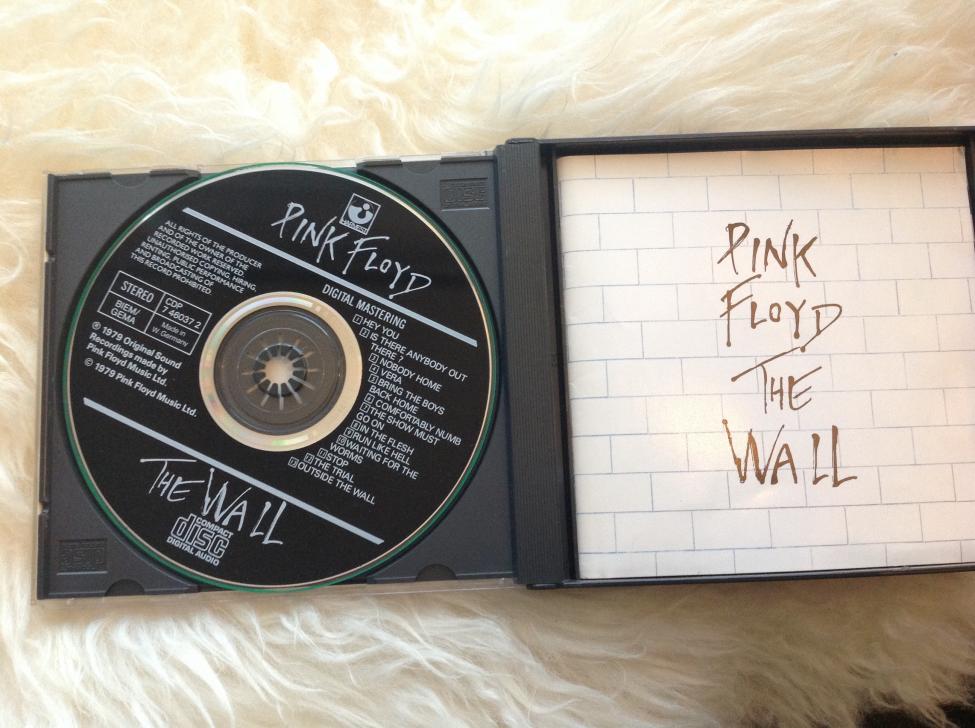 HARVEST
PINK FLOYD
ALL RIGHTS OF THE PRODUCER
AND OF THE OWNER OF THE
RECORDED WORK RESERVED
UNAUTHORISED COPYING, HIRING,
RENTING, PUBLIC PERFORMANCE
AND BROADCASTING OF
THIS RECORD PROHIBITED.
DIGITAL MASTERING
STEREO
CDP
7 46037 2
BIEM/
GEMA
Made in
W. Germany
℗ 1979 Original Sound
Recordings made by
Pink Floyd Music Ltd.
© 1979 Pink Floyd Music Ltd.
1 HEY YOU
2 IS THERE ANYBODY OUT
THERE ?
3 NOBODY HOME
4 VERA
5 BRING THE BOYS
BACK HOME
6 COMFORTABLY NUMB
7 THE SHOW MUST
GO ON
8 IN THE FLESH
9 RUN LIKE HELL
10 WAITING FOR THE
WORMS
11 STOP
12 THE TRIAL
13 OUTSIDE THE WALL
THE WALL
COMPACT
disc
DIGITAL AUDIO
PINK
FLOYD
THE
WALL